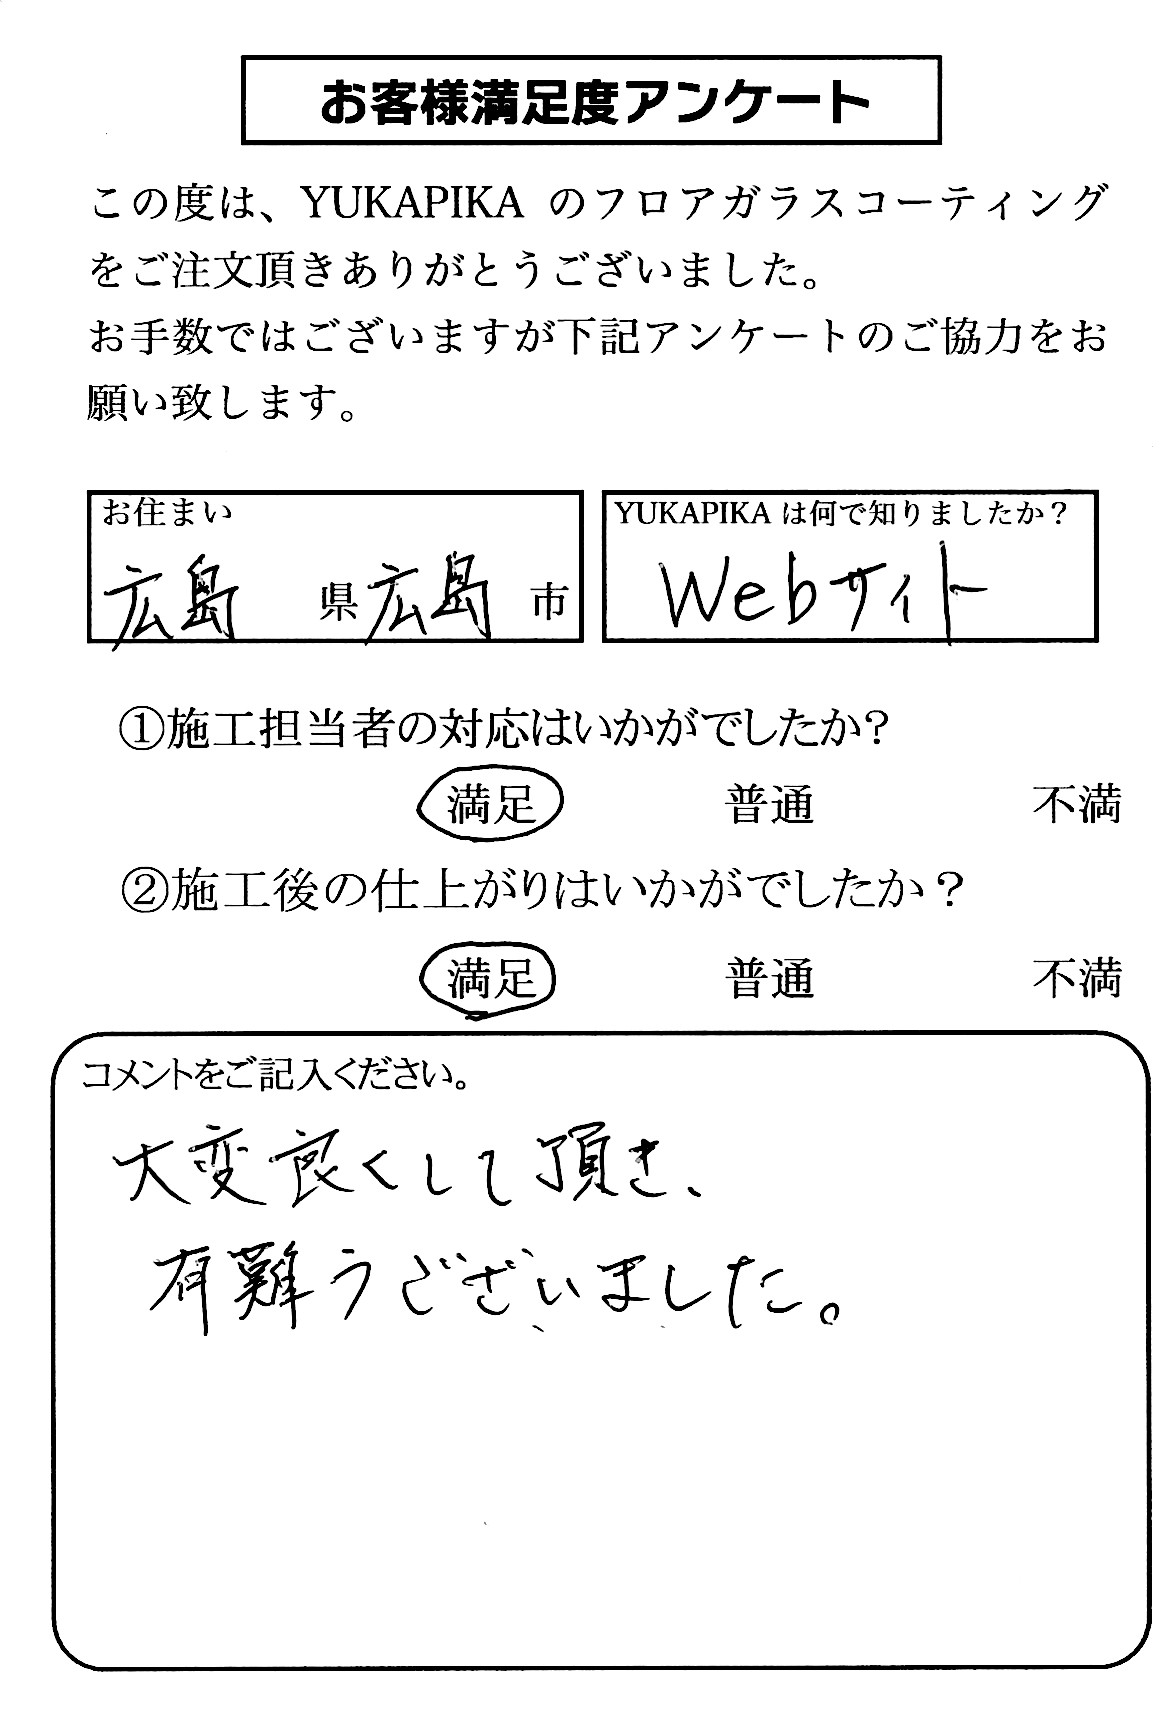 お客様満足度アンケート
この度は、YUKAPIKA のフロアガラスコーティング
をご注文頂きありがとうございました。
お手数ではございますが下記アンケートのご協力をお
願い致します。
お住まい
広島 県 広島 市
YUKAPIKA は何で知りましたか？
Webサイト
①施工担当者の対応はいかがでしたか?
満足 普通 不満
②施工後の仕上がりはいかがでしたか？
満足 普通 不満
コメントをご記入ください。
大変良くして頂き、
有難うございました。